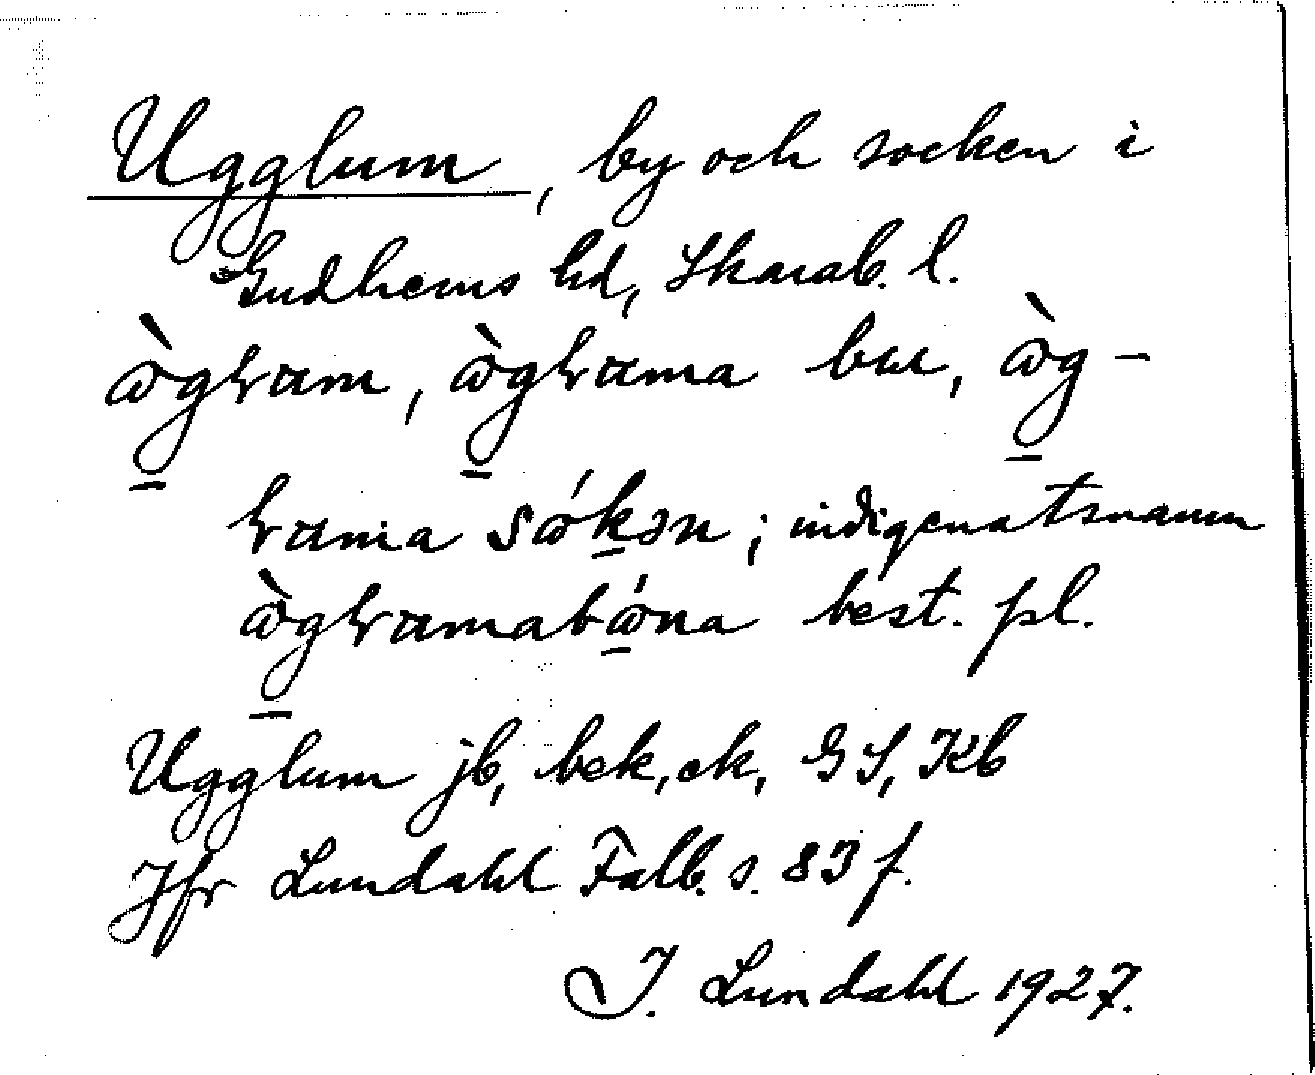 Ugglum, by och socken i
Gudhems hd, Skarab. l.
ꞷ̀gɫɑm, ꞷ̀gɫɑma bɯ, ꞷ̀g-
ɫɑma sꞷ́kən; indigenatsnamn
ꞷ̀gɫɑmabꞷ́na best. pl.
Ugglum jb, bek, ek, GS, Kb
Jfr Lundahl Falb. s. 83 f.
I. Lundahl 1927.